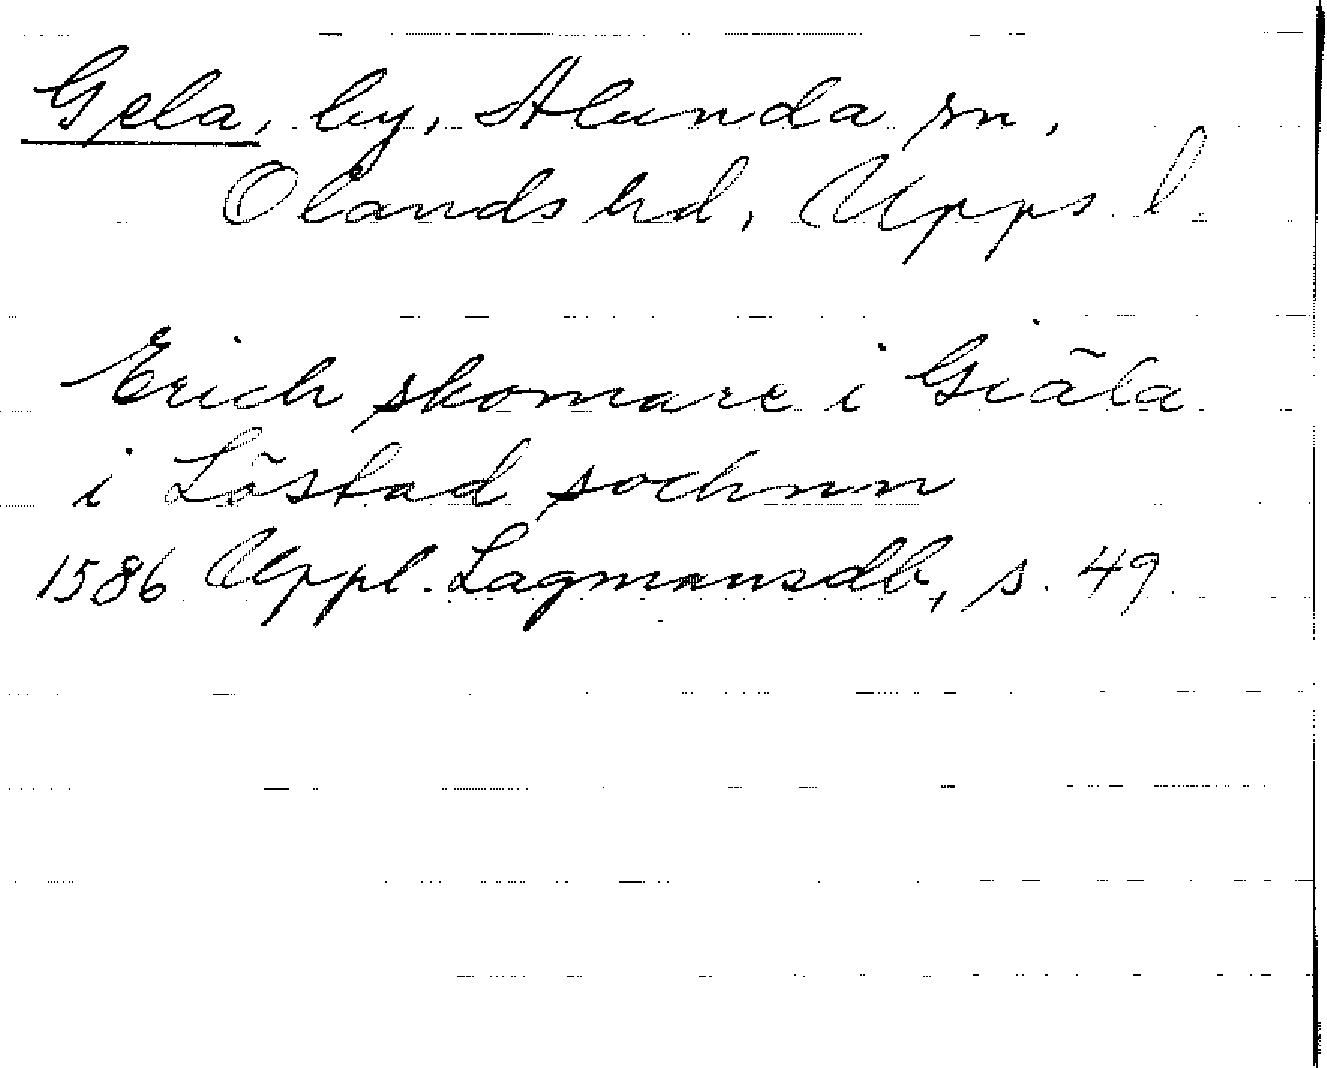 Gela, by, Alunda sn,
Olands hd, Upps. l.
Erich skomare i Giäla
i Löstad sochnn
1586 Uppl. Lagmansdb, s. 49